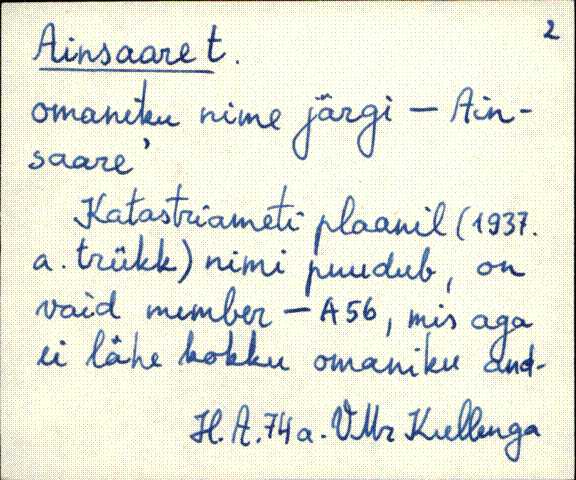 2
Ainsaare t.
omaniku nime järgi – Ain-
saare'
Katastriameti plaanil (1937.
a. trükk) nimi puudub, on
vaid number – A56, mis aga
ei lähe kokku omaniku and-
H.A. 74 a. VMr Kullenga